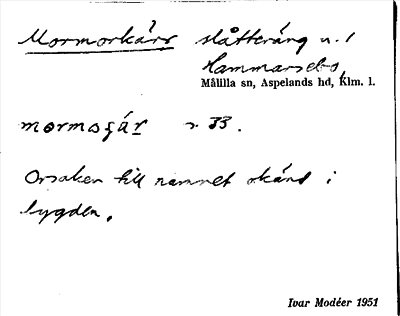 Mormorkärr slåtteräng u. /
Hammarsebo,
Målilla sn, Aspelands hd, Klm. l.
mormoʂár s. 33.
Orsaken till namnet okänd i
bygden.
Ivar Modéer 1951